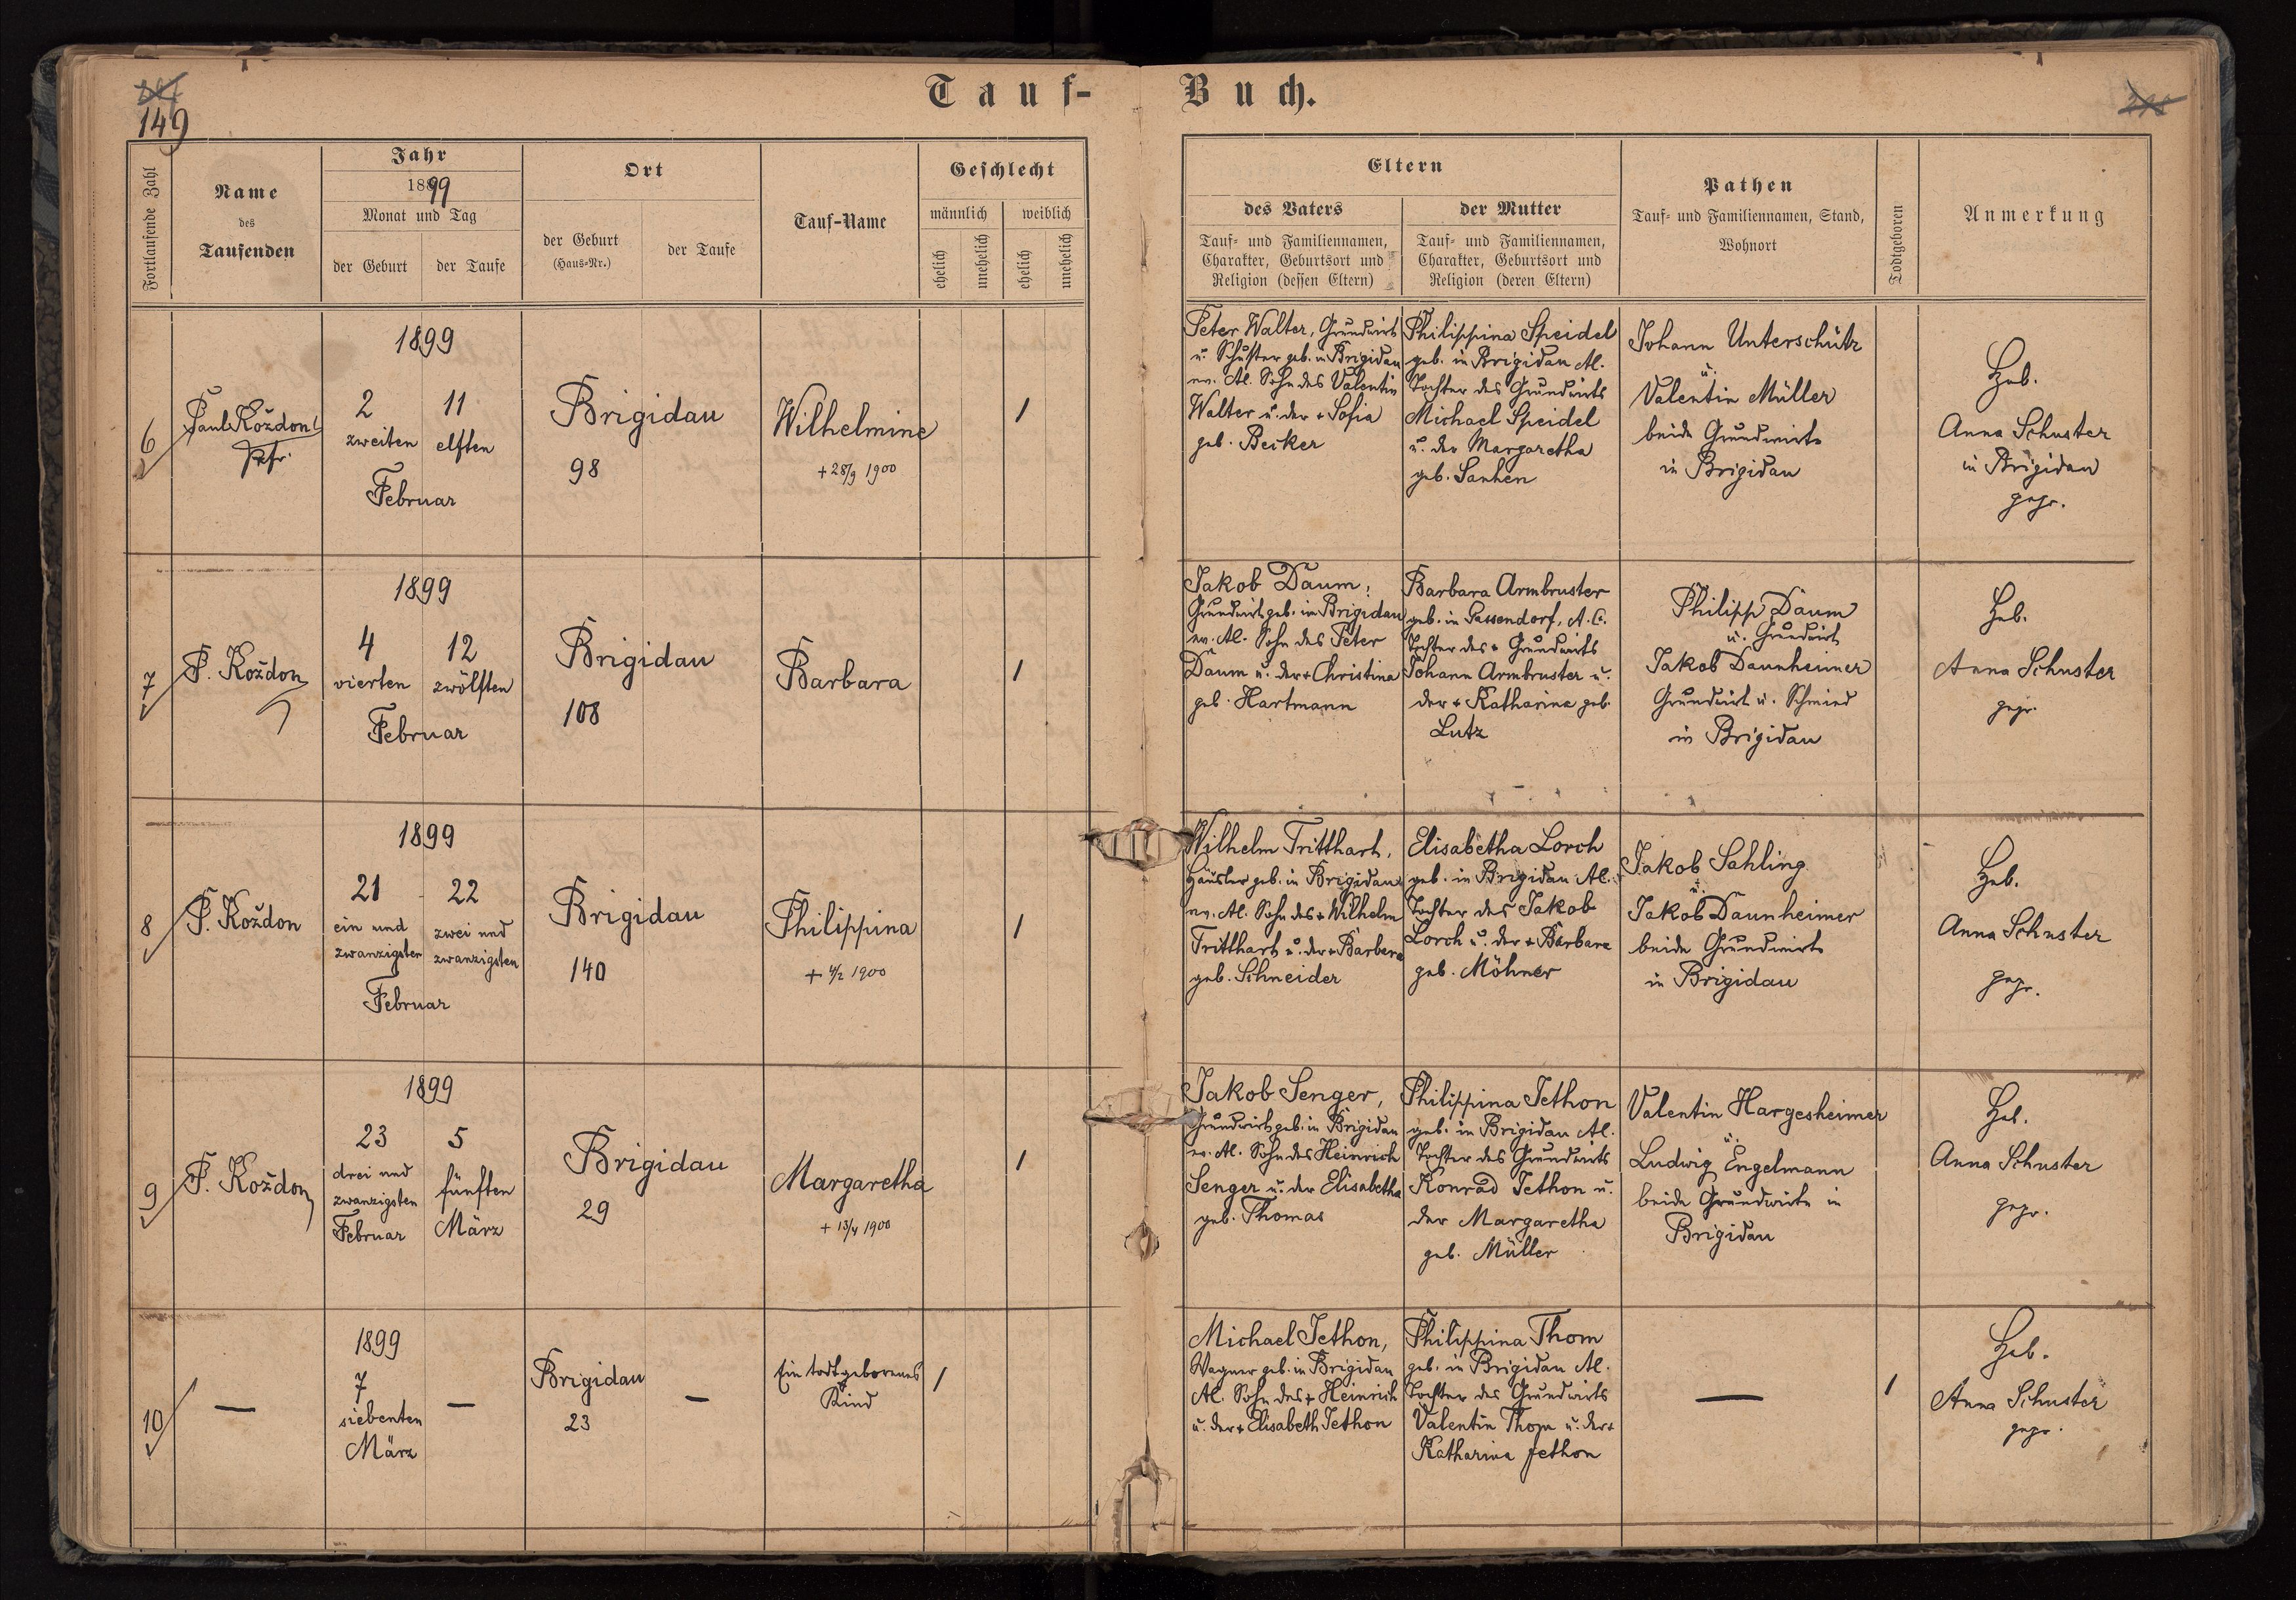 Tauf-Buch.
149
Fortlaufende Zahl
Name
des
Taufenden
Jahr
1899
Monat und Tag
der Geburt
der Taufe
Ort
der Geburt
(Haus-Nr.)
der Taufe
Tauf-Name
Geschlecht
männlich
weiblich
ehelich
unehelich
ehelich
unehelich
Eltern
des Vaters
Tauf- und Familiennamen,
Charakter, Geburtsort und
Religion (dessen Eltern)
der Mutter
Tauf- und Familiennamen,
Charakter, Geburtsort und
Religion (deren Eltern)
Pathen
Tauf- und Familiennamen, Stand,
Wohnort
Todtgeboren
Anmerkung
6
Paul Kożdon
Pfr.
1899
2
zweiten
11
elften
Februar
Brigidau
98
Wilhelmine
+ 28/9 1900
1
Peter Walter, Grundwirt
u. Schuster geb. in Brigidau
ev. AC. Sohn des Valentin
Walter u. der + Sofia
geb. Becker
Philippina Speidel
geb. in Brigidau AC.
Tochter des Grundwirts
Michael Speidel
u. der Margaretha
geb. Sanhen
Johann Unterschütz
u.
Valentin Müller
beide Grundwirte
in Brigidau
Heb.
Anna Schuster
in Brigidau
gepr.
7
P. Kożdon
1899
4
vierten
12
zwölften
Februar
Brigidau
108
Barbara
1
Jakob Daum,
Grundwirt geb. in Brigidau
ev. AC. Sohn des Peter
Daum u. der + Christina
geb. Hartmann
Barbara Armbruster
geb. in Gassendorf, A. C.
Tochter des + Grundwirts
Johann Armbruster u.
der + Katharina geb.
Lutz
Philipp Daum
u. Grundwirt
Jakob Daunheimer
Grundwirt u. Schmied
in Brigidau
Heb.
Anna Schuster
gepr.
8
P. Kożdon
1899
21
ein und
zwanzigsten
22
zwei und
zwanzigsten
Februar
Brigidau
140
Philippina
+ 4/2 1900
1
Wilhelm Tritthart,
Häusler geb. in Brigidau
ev. AC. Sohn des + Wilhelm
Tritthart u. der + Barbara
geb. Schneider
Elisabetha Lorch
geb. in Brigidau AC.
Tochter des Jakob
Lorch u. der + Barbara
geb. Möhner
Jakob Sahling
u.
Jakob Daunheimer
beide Grundwirte
in Brigidau
Heb.
Anna Schuster
gepr.
9
P. Kożdon
1899
23
drei und
zwanzigsten
Februar
5
fünften
März
Brigidau
29
Margaretha
+ 13/4 1900
1
Jakob Senger,
Grundwirt geb. in Brigidau
ev. AC. Sohn des Heinrich
Senger u. der Elisabetha
geb. Thomas
Philippina Jethon
geb. in Brigidau AC.
Tochter des Grundwirts
Konrad Jethon u.
der Margaretha
geb. Müller
Valentin Hargesheimer
u.
Ludwig Engelmann
beide Grundwirte in
Brigidau
Heb.
Anna Schuster
gepr.
10
—
1899
7
siebenten
März
—
Brigidau
23
—
Ein todtgeborenes
Kind
1
Michael Jethon,
Wagner geb. in Brigidau
AC. Sohn des + Heinrich
u. der + Elisabeth Jethon
Philippina Thom
geb. in Brigidau AC.
Tochter des Grundwirts
Valentin Thom u. der +
Katharina Jethon
—
1
Heb.
Anna Schuster
gepr.